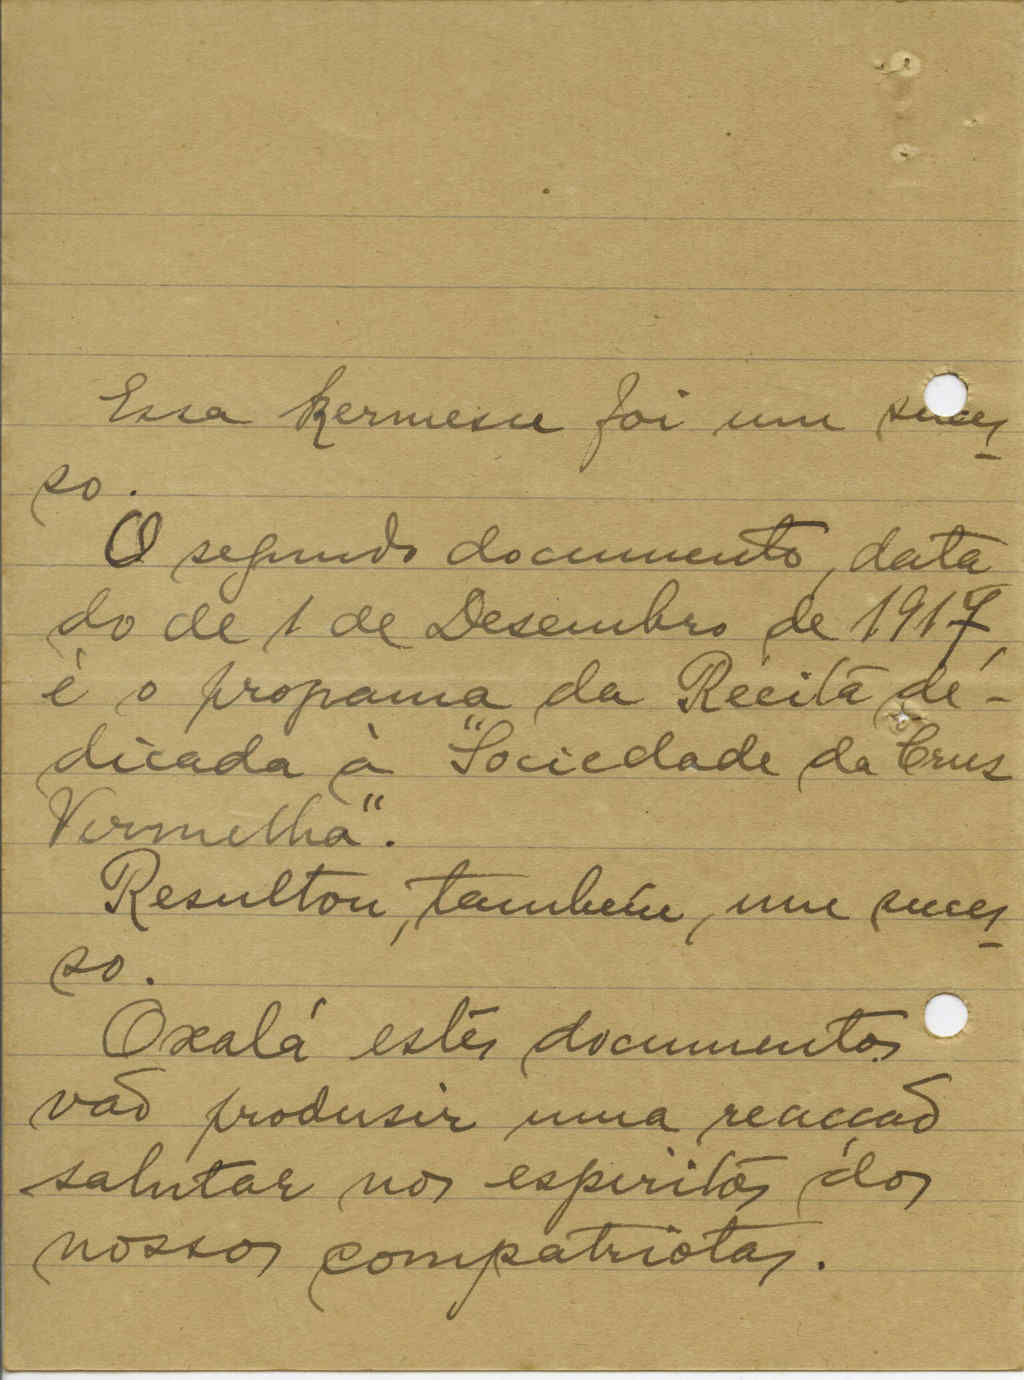 Essa kermesse foi um suces
so.
O segundo documento, data
do de 1 de Desembro de 1917,
é o programa da Récita de-
dicada à "Sociedade da Cruz
Vermelha".
Resultou, também, um suces
so.
Oxalá estes documentos
vão produsir uma reacção
salutar nos espiritos dos
nossos compatriotas.